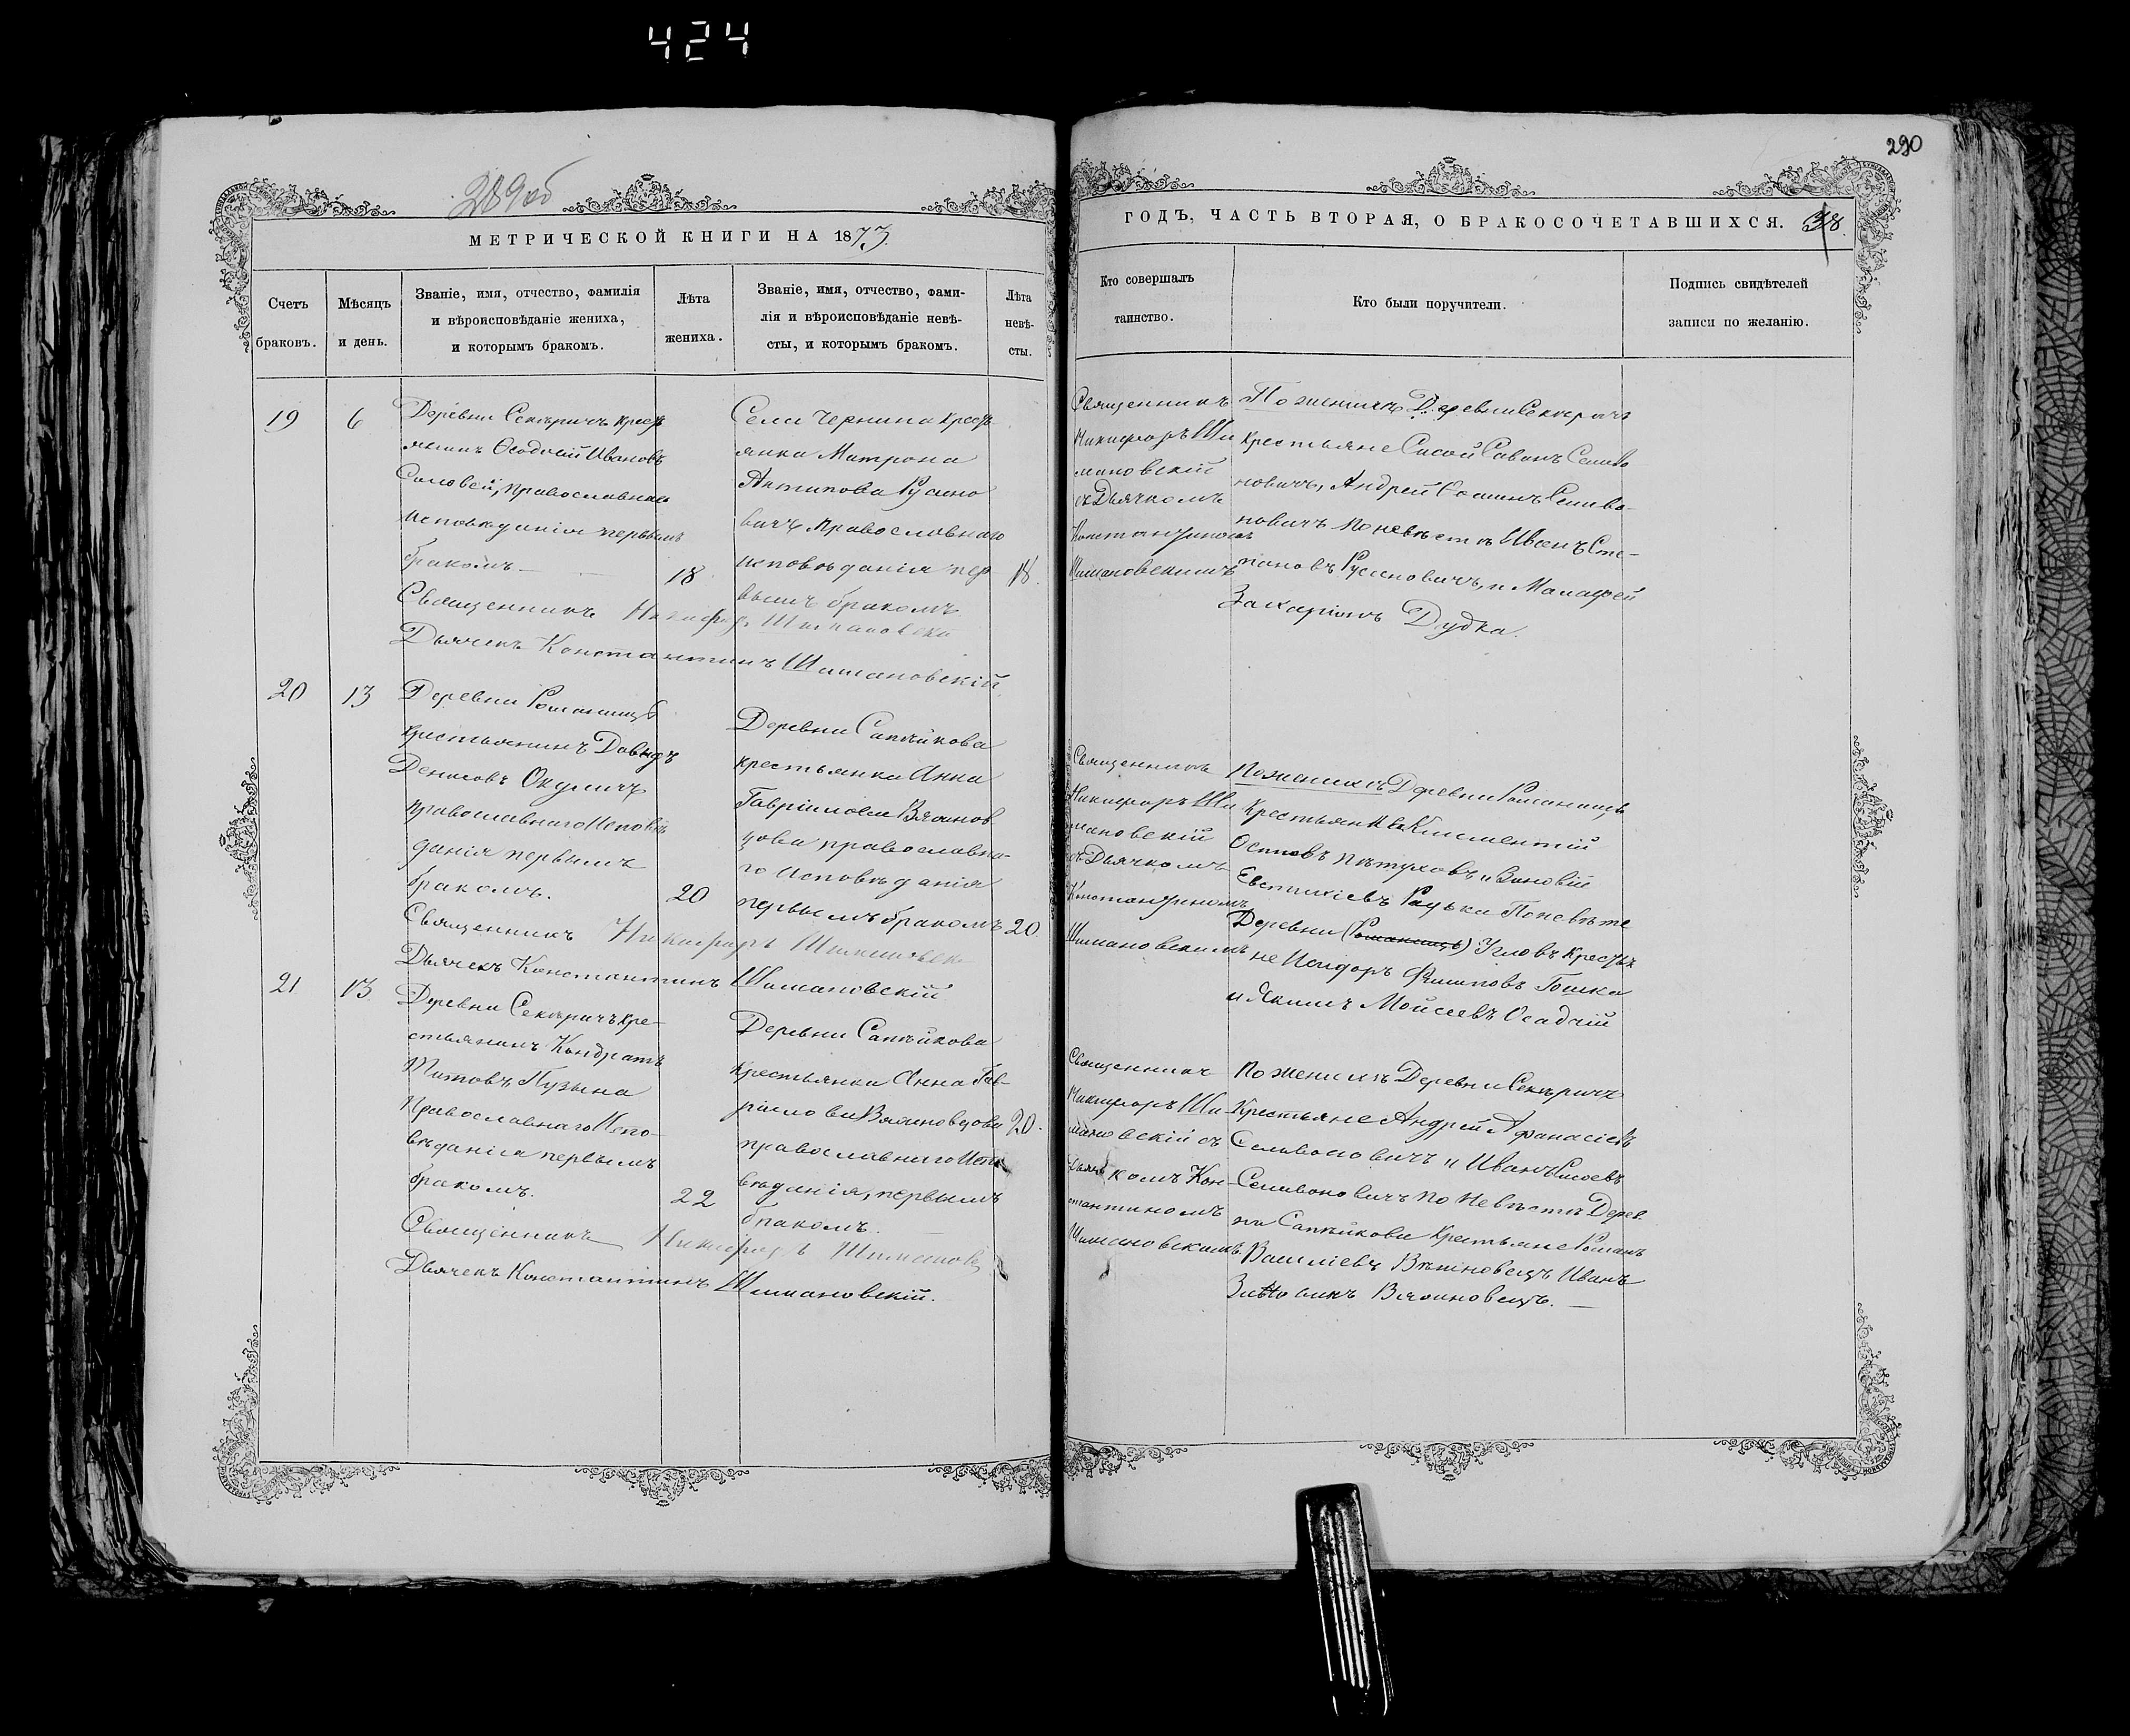 424
290
289об
МЕТРИЧЕСКОЙ КНИГИ НА 1873
Счетъ браковъ.
Мѣсяцъ и день.
Званіе, имя, отчество, фамилія
и вѣроисповѣданіе жениха,
и которымъ бракомъ.
Лѣта
жениха.
Званіе, имя, отчество, фами-
лія и вѣроисповѣданіе невѣ-
сты, и которымъ бракомъ.
Лѣта
невѣ-
сты.
19
6
Деревни Секѣричъ крестъ
янинъ Ѳеодосій Ивановъ
Соловей, православнаго
исповѣданія первымъ
бракомъ.
18
Села Чернина крестъ-
янка Матрона
Антипова Русино
вичъ православнаго
исповѣданія пер
вымъ бракомъ.
18.
Священникъ Никифоръ Шимановскі
Дьячекъ Константинъ Шимановскій.
20
13
Деревни Романищъ
крестьянинъ Давидъ
Денисовъ
православнаго Исповѣ
данія первымъ
бракомъ.
20
Деревни Сапѣйкова
крестьянка Анна
Гавріилова Вяз
цова православна-
го исповѣданія
первымъ бракомъ
20.
Священникъ Никифоръ Шимановск
Дьячекъ Константинъ Шимановскій
21
13
Деревни Секѣричъ кре-
стьянинъ Кондратъ
Титовъ Пузына
Православнаго Испо-
вѣданія первымъ
бракомъ.
22
Деревни Сапѣйкова
крестьянка Анна Гав-
ріилова
православнаго Испо
вѣданія, первымъ
бракомъ.
20.
Священникъ Никифоръ Шиманов
Дьячекъ Константинъ Шимановскій.
ГОДЪ, ЧАСТЬ ВТОРАЯ, О БРАКОСОЧЕТАВШИХСЯ.
38
Кто совершалъ
таинство.
Кто были поручители.
Подпись свидѣтелей
записи по желанію.
Священникъ
Никифоръ Ши
мановскій
съ Дьячкомъ
Константиномъ
Шимановскимъ
По женихѣ Деревни Секеричъ
крестьяне Сисой Савинъ Селиво
новичъ, Андрей Селиво-
новичъ по невѣстѣ Иванъ Сте-
пановъ Русиновичъ, и Малафей
Захаріинъ Дудка.
Священникъ
Никифоръ Ши
мановскій
съ Дьячкомъ
Константиномъ
Шимановскимъ
По женихѣ Деревни Романищъ
Крестьяне Климентій
Осиповъ Пѣтуховъ и Зиновій
Евстихіевъ Радька По невѣсте
Деревни (Романищъ) Угловъ Крестья
не Исидоръ Филиповъ Гошка
и Якимъ Мойсеевъ Осадчій
Священникъ
Никифоръ Ши-
мановскій съ
Дьячкомъ Кон-
стантиномъ
Шимановскимъ.
По женихѣ Деревни Секѣричъ
Крестьяне Андрей Афанасіевъ
Селивоновичъ и Иванъ Сисоевъ
Селивоновичъ по Невѣстѣ Дерев.
ни Сапѣйкова Крестьяне Романъ
Василіевъ Иванъ